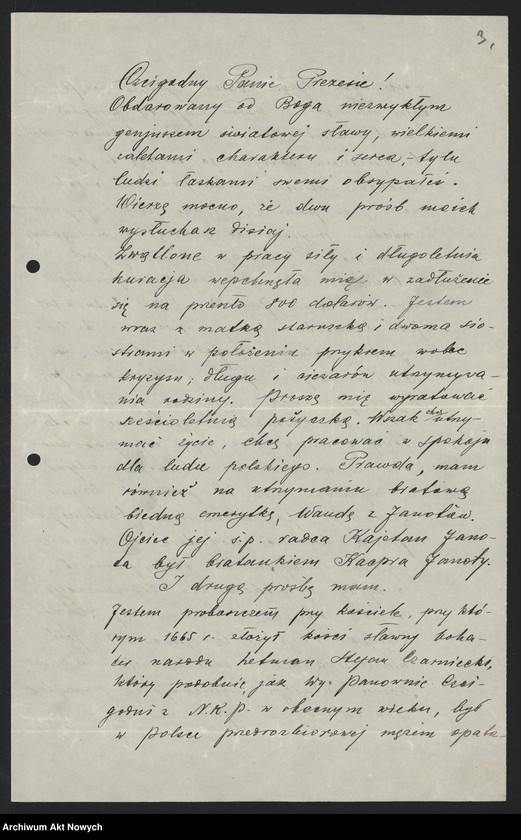 3.
Czcigodny Panie Prezesie!
Obdarowany od Boga niezwykłym
genjuszem światowej sławy, wielkiemi
zaletami charakteru i serca, – tylu
ludzi łaskami swemi obsypałeś.
Wierzę mocno, że dwu próśb moich
wysłuchasz dzisiaj.
Zwątlone w pracy siły i długoletnia
kuracja wepchnęła mię w zadłużenie
się na przeszło 800 dolarów. Jestem
wraz z matką staruszką i dwoma sio-
strami w położeniu przykrem wobec
kryzysu, długu i ciężarów utrzymywa-
nia rodziny. Proszę mię wyratować
sześcioletnią pożyczką. Wszak chcę utrzy-
mać życie, chcę pracować w spokoju
dla ludu polskiego. Prawda, mam
również na utrzymaniu bratową
biedną emerytkę, Wandę z Janotów.
Ojciec jej ś.p. radca Kajetan Jano-
ta był bratankiem Kacpra Janoty.
I drugą prośbę mam.
Jestem proboszczem przy kościele, przy któ-
rym 1665 r. złożył kości sławny boha-
ter narodu hetman Stefan Czarniecki,
który podobnie, jak Wy, Panowie Czci-
godni z N.K.P. w obecnym wieku, był
w Polsce przedrozbiorowej mężem opatrz-
Archiwum Akt Nowych